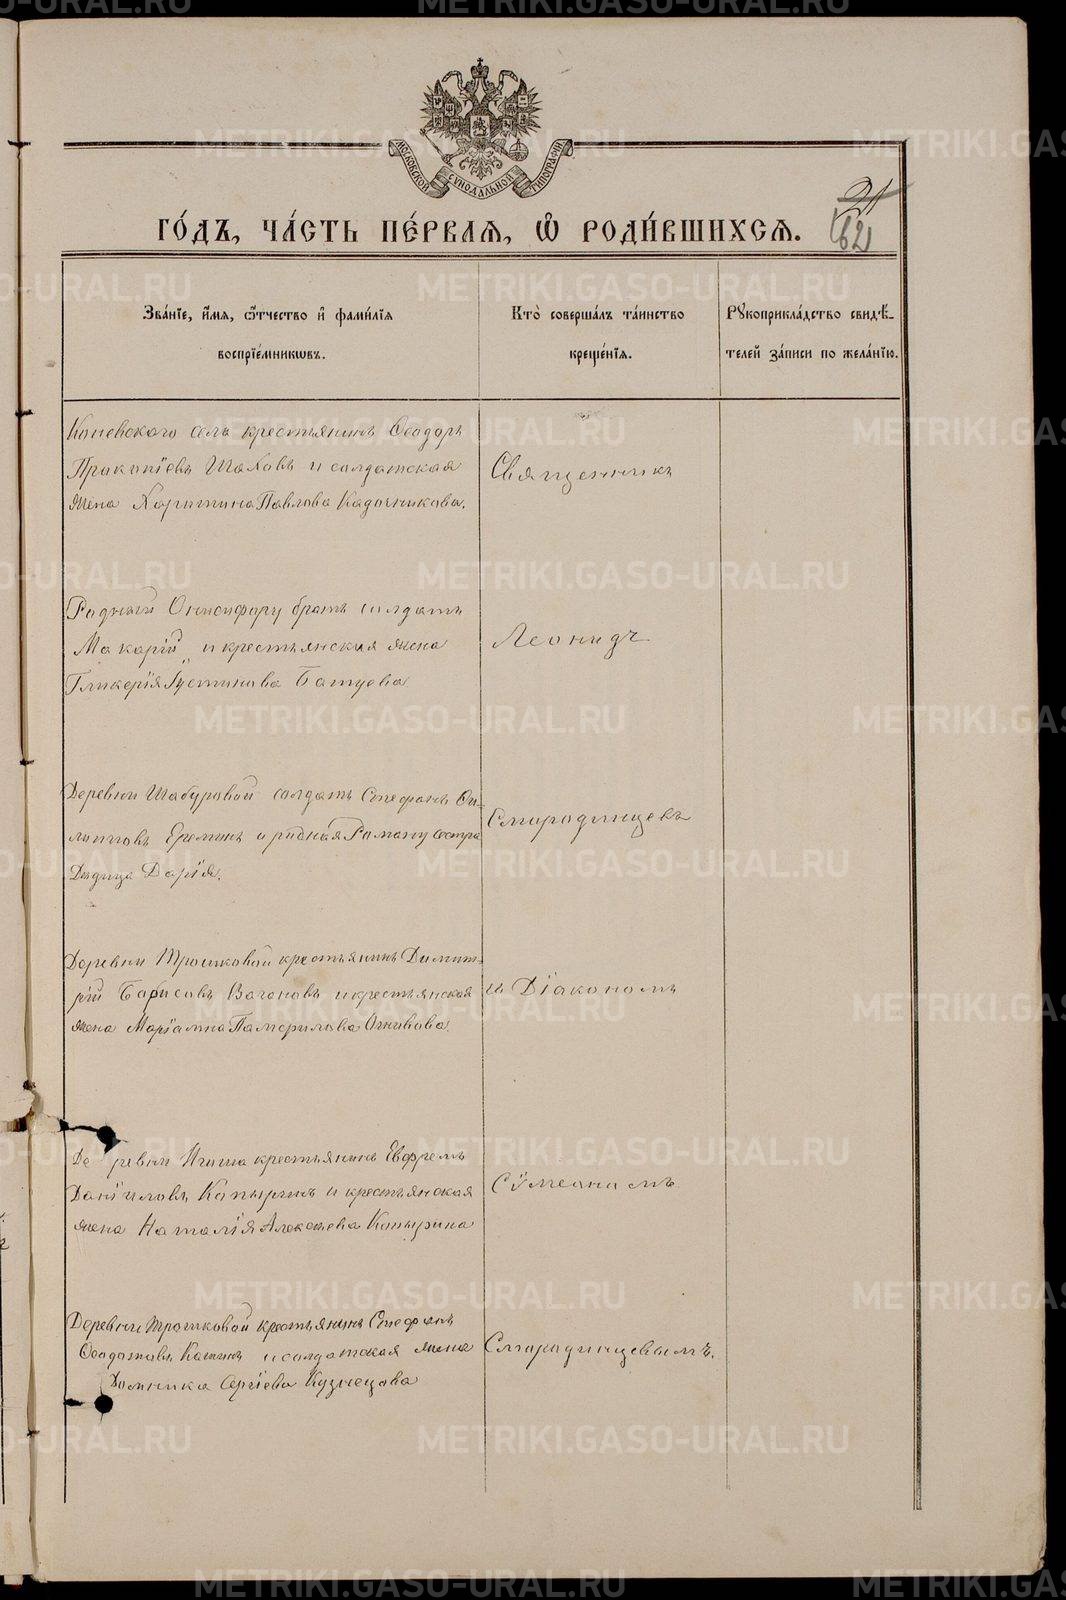 МОСКОВСКОЙ СѴНОДАЛЬНОЙ ТИПОГРАФІИ
21
62
ГО́ДЪ, ЧА́СТЬ ПЕ́РВАЯ, Ѽ РОДИ́ВШИХСЯ.
Зва́нїе, и҆́мя, ѻ҆́тчество и҆ фами́лїя
воспрїе́мникωвъ.
Кто̀ соверша́лъ та́инство
креще́нїя.
Рꙋкоприкла́дство свидѣ́-
телей за́писи по жела́нїю.
Коневскаго села крестьянинъ Ѳеодоръ
Прокопіевъ Шаховъ и солдатская
жена Харитина Павлова Кадочникова.
Священникъ
Родный Онисифору братъ солдатъ
Макарій и крестьянская жена
Гликерія Іустинова Батуева
Леонидъ
Деревни Шабуровой солдатъ Стефанъ Фи-
липповъ Ереминъ и родная Роману сестра
дѣвица Дарія.
Смородинцевъ
Деревни Трошковой крестьянинъ Димит-
рій Борисовъ Вагановъ и крестьянская
жена Маріамна Огнивова
и Діакономъ
Деревни крестьянинъ Евфремъ
Даніиловъ Копыринъ и крестьянская
жена Наталія Алексѣева Копырина
Сѵмеономъ
Деревни Трошковой крестьянинъ Стефанъ
Ѳедотовъ и солдатская жена
Домника Сергіева Кузнецова
Смородинцевымъ.
METRIKI.GASO-URAL.RU